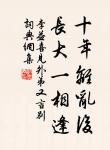 十年離亂後
長大一相逢
李益喜見外弟又言別
詞典網集